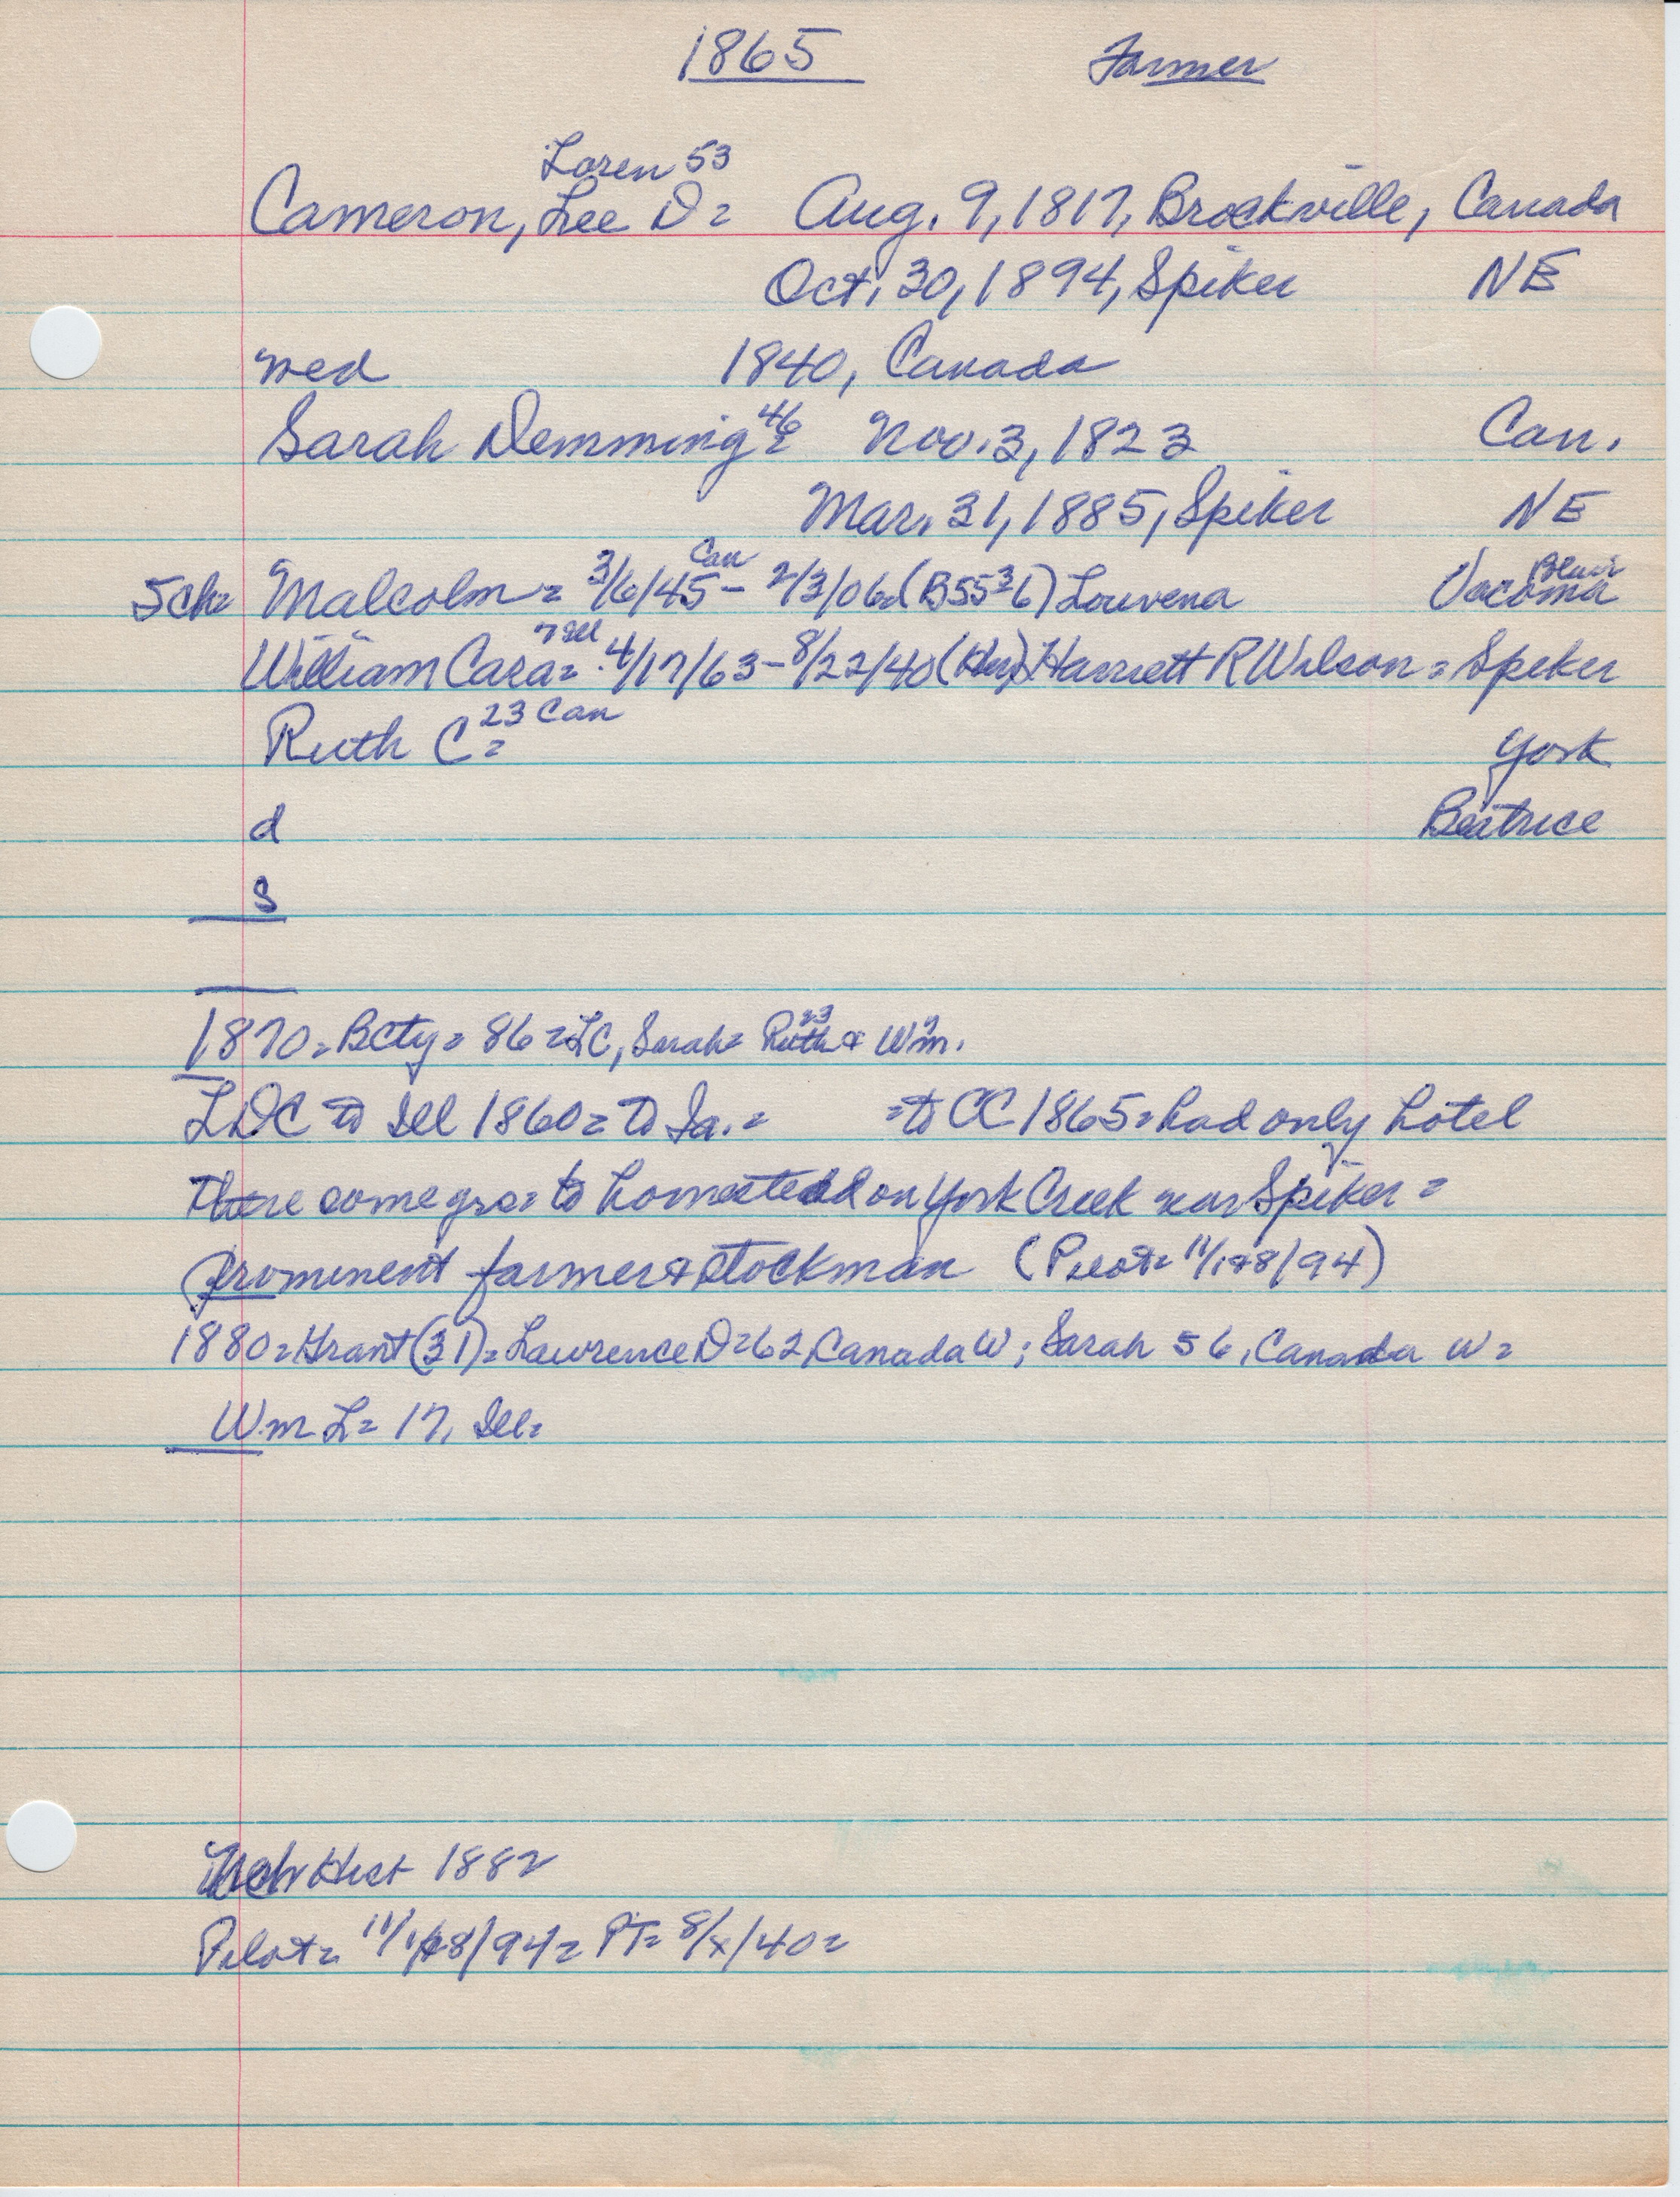 1865 Farmer
Loren 53
Cameron, Lee D= Aug. 9, 1817, Brockville, Canada
Oct. 30, 1894, Spiker NE
med 1840, Canada
46
Sarah Demming= Nov. 3, 1823 Can.
Mar. 31, 1885, Spiker NE
Can Blair
5ch= Malcolm= 3/6/45- 2/3/06=( ) Louvena Vacoma
7 Ill
William Cara= 4/17/63-8/22/40 ( ) Harriett R Wilson= Spiker
23 Can
Ruth C= York
d Beatrice
s
23 9
1870= Bcty= 86= LC, Sarah= Ruth & Wm.
LDC to Ill 1860= to Ia.= =to CC 1865=had only hotel
there some yrs= to homestead on York Creek near Spiker=
prominent farmer & stockman (Pilot= 11/1&8/94)
1880=Grant (31)=Lawrence D=62 Canada W; Sarah 56, Canada W=
Wm L= 17, Ill=
Hist 1882
Pilot= 11/1&8/94= PT= 8/x/40=